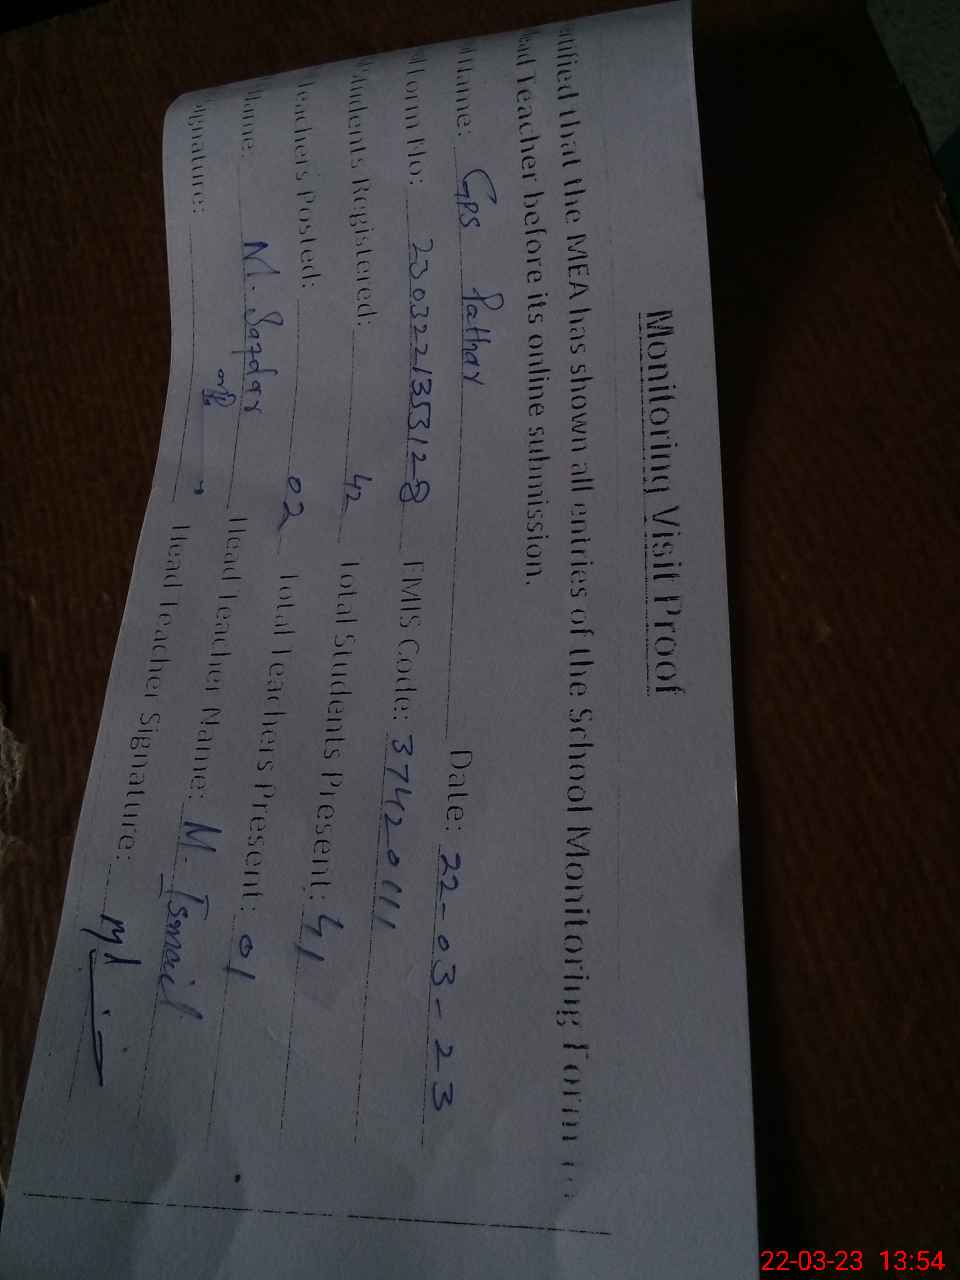 Monitoring Visit Proof
tified that the MEA has shown all entries of the School Monitoring Form
ead Teacher before its online submission.
Name: GPS Pathar Date: 22-03-23
Form No: 230322135312-8 EMIS Code: 37420111
Students Registered: 42 Total Students Present: 41
Teachers Posted: 02 Total Teachers Present: 01
Name: M. Safdar Head Teacher Name: M. Ismail
Signature: Head Teacher Signature:
22-03-23 13:54